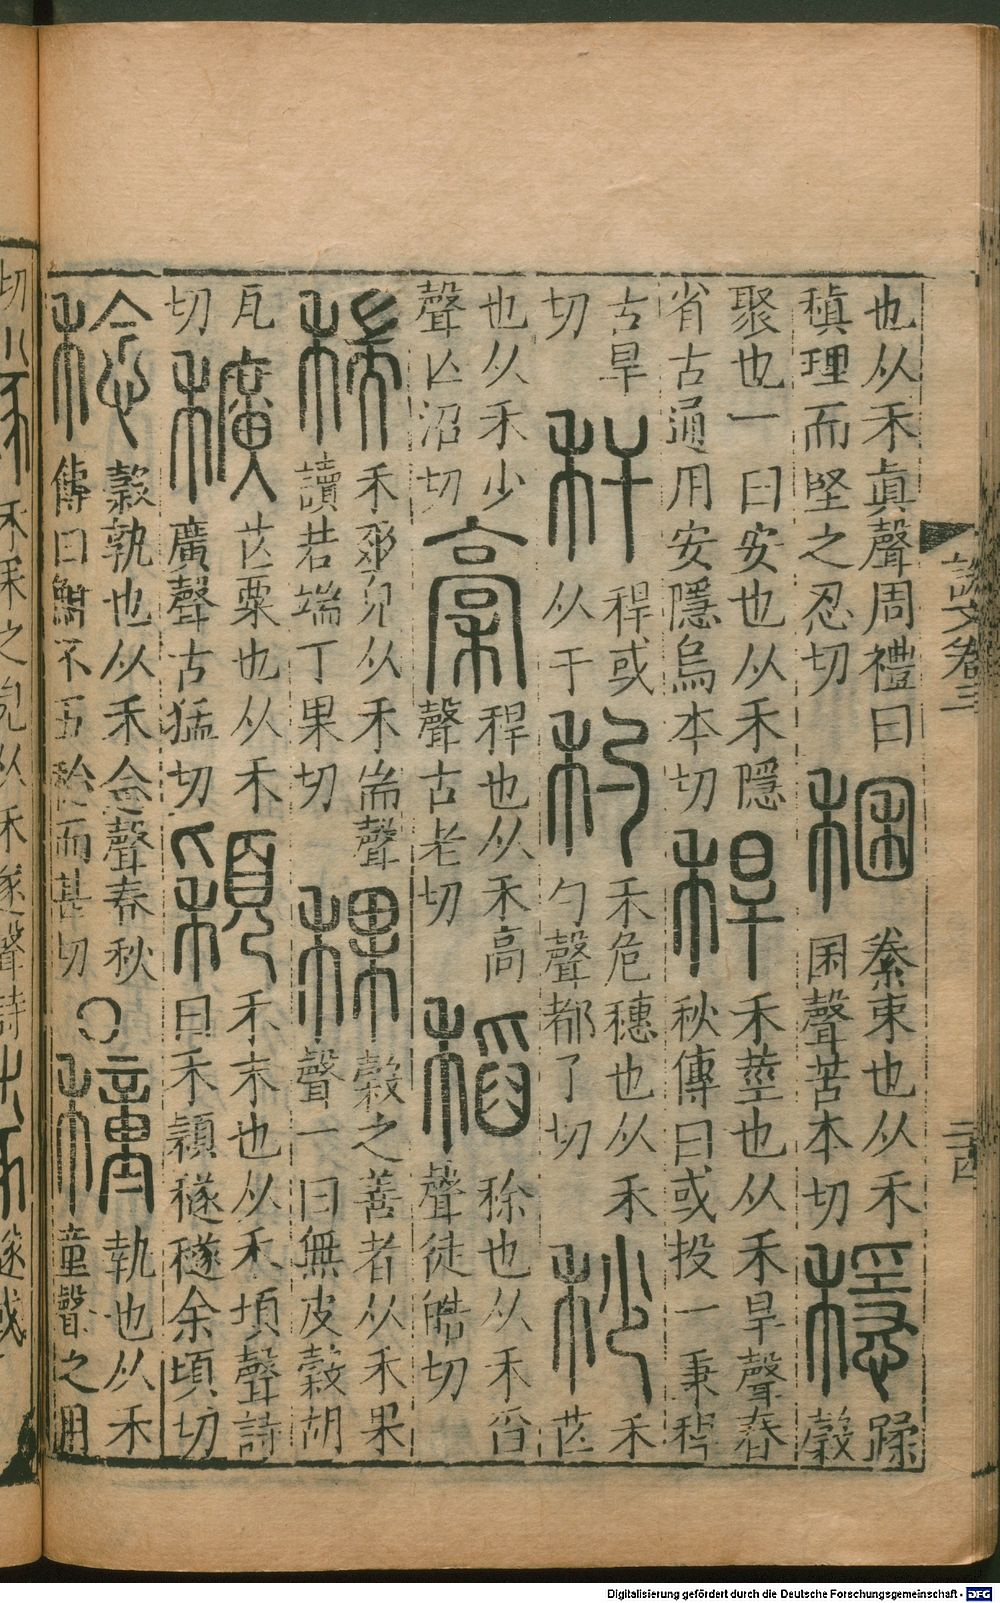 說文卷三
二十四
也从禾眞聲周禮曰
稹理而堅之忍切
稇
絭束也从禾
囷聲苦本切
穩
蹂
穀
聚也一曰安也从禾隱
省古通用安隱烏本切
稈
禾莖也从禾旱聲春
秋傳曰或投一秉稈
古旱
切
秆
稈或
从干
䄪
禾危穗也从禾
勺聲都了切
秒
禾
芒
也从禾少
聲亡沼切
稾
稈也从禾高
聲古老切
稻
稌也从禾舀
聲徒皓切
禾垂皃从禾耑聲
讀若端丁果切
稞
穀之善者从禾果
聲一曰無皮穀胡
瓦
切
穬
芒粟也从禾
廣聲古猛切
穎
禾末也从禾頃聲詩
曰禾穎穟穟余頃切
稔
穀孰也从禾念聲春秋
傳曰鮮不五稔而甚切
○
穜
埶也从禾
童聲之用
切
禾采之皃从禾遂聲詩
Digitalisierung gefördert durch die Deutsche Forschungsgemeinschaft - DFG